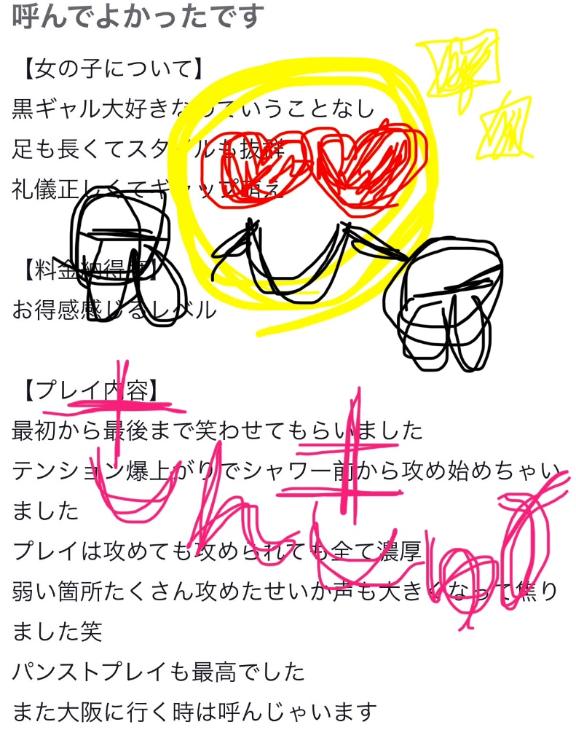 呼んでよかったです
【女の子について】
黒ギャル大好きなのでいうことなし
足も長くてスタイルも抜群
礼儀正しくてギャップ萌え
【料金納得度】
お得感感じるレベル
【プレイ内容】
最初から最後まで笑わせてもらいました
テンション爆上がりでシャワー前から攻め始めちゃい
ました
プレイは攻めても攻められても全て濃厚
弱い箇所たくさん攻めたせいか声も大きくなって焦り
ました笑
パンストプレイも最高でした
また大阪に行く時は呼んじゃいます
さんきゅう